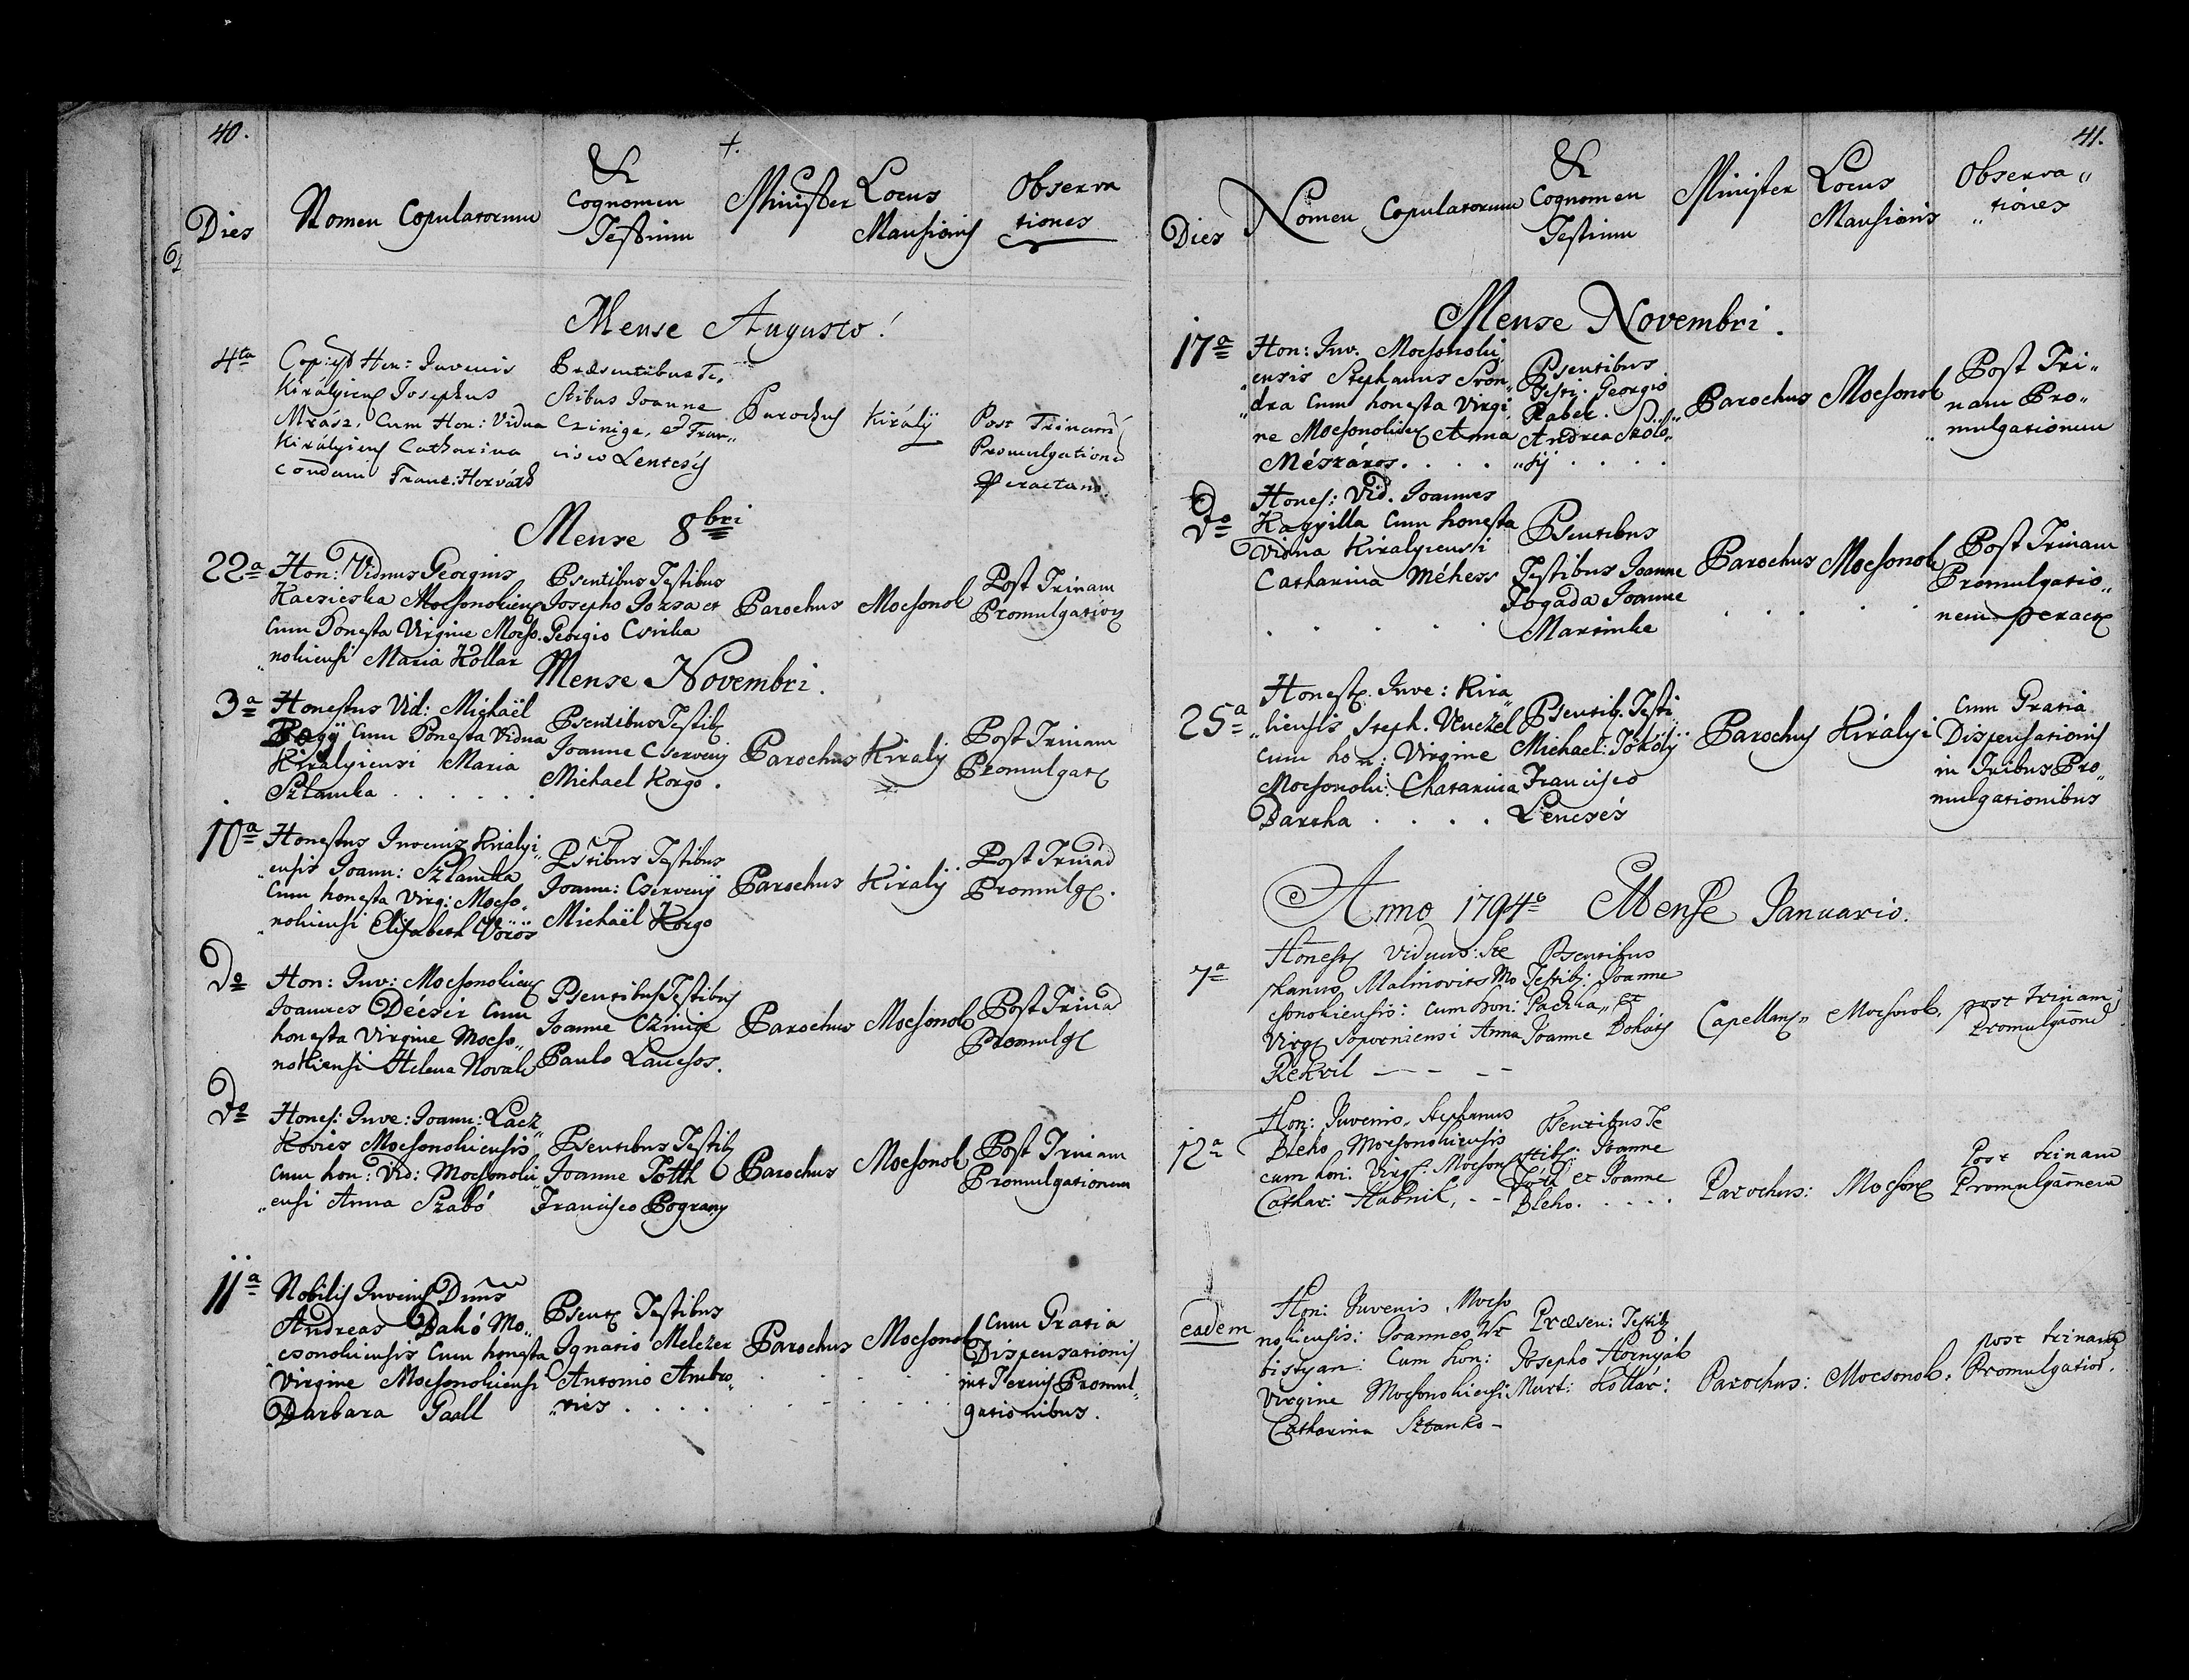 40.
Dies
Nomen Copulatorum
&
Cognomen
Testium
Minister
Locus
Mansionis
Observa
tiones
Mense Augusto!
4ta
Cop: est Hon: Juvenis
Királyiens Josephus
Mrász, Cum Hon: Vidua
Királyiens Catharina
condam Franc: Horváth
Præsentibus Te,
stibus Joanne
Czinige, et Fran,,
cisco Lentesÿ
Parochus
Királÿ
Post Trinam
Promulgation
Peractam.
Mense 8bri
22a
Hon: Viduus Georgius
Kacsicska Mocsonokiens
Cum Honesta Virgine Mocso,
nokiensi Maria Kollar
Psentibus Testibus
Josepho Jozsa et
Georgio Csirka
Parochus
Mocsonok
Post Trinam
Promulgation
Mense Novembri.
3a
Honestus Vid: Michaël
Bagÿ Cum Honesta Vidua
Királyiensi Maria
Szlamka . . . . . .
Psentibus Testib
Joanne Cserveny
Michael Korgo.
Parochus
Királÿ
Post Trinam
Promulgat
10a
Honestus Juvenis Királyi
ensis Joann: Szlamka
Cum honesta Virg: Mocso,
nokiensi Elisabeth Vörös
Pstibus Testibus
Joann: Cservenÿ
Michaël Korgo
Parochus
Királÿ
Post Trinad
Promulg.
Do
Hon: Juv: Mocsonokiens
Joannes Décsir Cum
honesta Virgine Mocso,,
nokiensi Helena Novak
Psentibus Testibus
Joanne Czinige
Paulo Lancsos.
Parochus
Mocsonok
Post Trinad
Promulg
Do
Hones: Juve: Joann: Lacz,,
Kovics Mocsonokiensis
Cum hon: Vid: Mocsonoki
,,ensi Anna Szabó
Psentibus Testib
Joanne Totth
Francisco Pograny
Parochus
Mocsonok
Post Trinam
Promulgationem
11a
Nobilis Juvenis Dnus
Andreas Dahó Mo,,
csonokiensis Cum honesta
Virgine Mocsonokiensi
Barbara Gaall
Psent Testibus
Ignatio Melczer
Antonio Ambro,,
,,vics . . . .
Parochus
Mocsonok
Cum Gratia
Dispensationis
in Ternis Promul,,
gationibus.
41.
Dies
Nomen Copulatorum
&
Cognomen
Testium
Minister
Locus
Mansionis
Observa,,
,,tiones
Mense Novembri.
17a
Hon: Juv. Mocsonoki,
,,ensis Stephanus Svon,,
,,dra Cum honesta Virgi
ne Mocsonokiens Anna
Mészáros. . . .
Psentibus
Testi. Georgio
Raber.
Andrea Szölö,,
,,sÿ . . . .
Parochus
Mocsonok
Post Tri,,
nam Pro,,
mulgationem
Do
Hones: Vid. Joannes
Kagyilla Cum honesta
Vidua Kiralyiensi
Catharina Méhess
Psentibus
Testibus Joanne
Fogada Joanne
Marsinke
Parochus
Mocsonok
Post Trinam
Promulgatio,,
nem peract
25a
Honest. Juve: Kira,,
,,liensis Steph. Venczel
Cum hon: Virgine
Mocsonoki: Chatarina
Bartha . . . .
Psentib. Testi
Michael: Tököly
Francisco
Lencsés
Parochus
Királyi
Cum Gratia
Dispensationis
in Tribus Pro,,
mulgationibus
Anno 1794o Mense Januario.
7a
Honest Viduus: Ste
phanus Malinovits Mo
csonokiensis: cum hon:
Virg Soporniensi Anna
Rehvil — — —
Psentibus
Testib: Joanne
Paczka,, et
Joanne Boháts
Capellans,,
Mocsonok,
post trinam
Promulgaond
12a
Hon: Juvenis, Stephanus
Bleho Mocsonokiensis
cum hon: Virg: Mocson
Cathar: Hlabnik, - -
Psentibus Te
stib: Joanne
Tóth et Joanne
Bleho. . . . .
Parochus:
Mocson
Post trinam
Promulgaonem
eadem
Hon: Juvenis Mocso
nokiensis: Joannes Vr
bistyan: Cum hon:
Virgine Mocsonokiensi
Catharina Sztanko -
Præsen: Testib
Josepho Hornyák
Mart: Kollár:
Parochus:
Mocsonok,
post trinam
Promulgatiod.